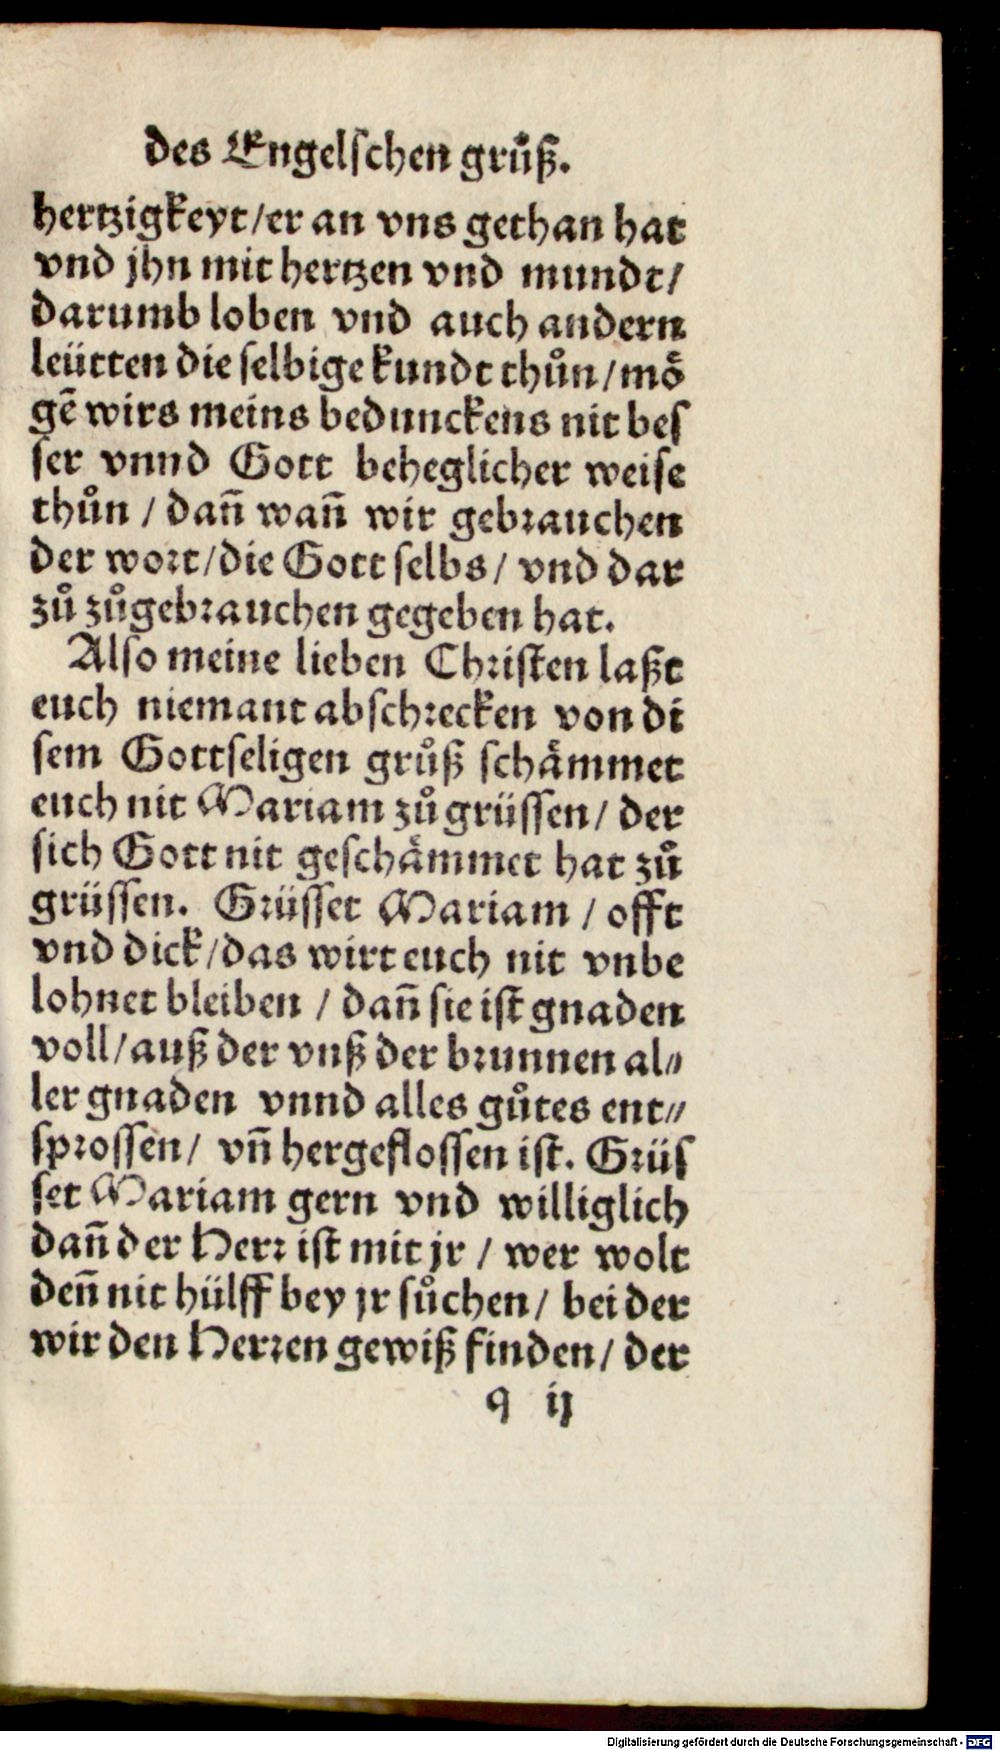 des Engelſchen grůß.
hertzigkeyt/er an vns gethan hat
vnd jhn mit hertzen vnd mundt/
darumb loben vnd auch andern
leütten die ſelbige kundt thůn/moͤ
gē wirs meins bedunckens nit beſ
ſer vnnd Gott beheglicher weiſe
thůn / dañ wañ wir gebrauchen
der wort/die Gott ſelbs/ vnd dar
zů zůgebrauchen gegeben hat.
Alſo meine lieben Chriſten laßt
euch niemant abſchrecken von di
ſem Gottſeligen grůß ſchaͤmmet
euch nit Mariam zů grüſſen/ der
ſich Gott nit geſchaͤmmet hat zů
grüſſen. Grüſſet Mariam / offt
vnd dick/das wirt euch nit vnbe
lohnet bleiben / dañ ſie iſt gnaden
voll/auß der vnß der brunnen al⸗
ler gnaden vnnd alles gůtes ent⸗
ſproſſen/ vñ hergefloſſen iſt. Grüſ
ſet Mariam gern vnd williglich
dañ der Herr iſt mit jr / wer wolt
deñ nit hülff bey jr ſůchen/ bei der
wir den Herren gewiß finden/ der
q ij
Digitalisierung gefördert durch die Deutsche Forschungsgemeinschaft - DFG